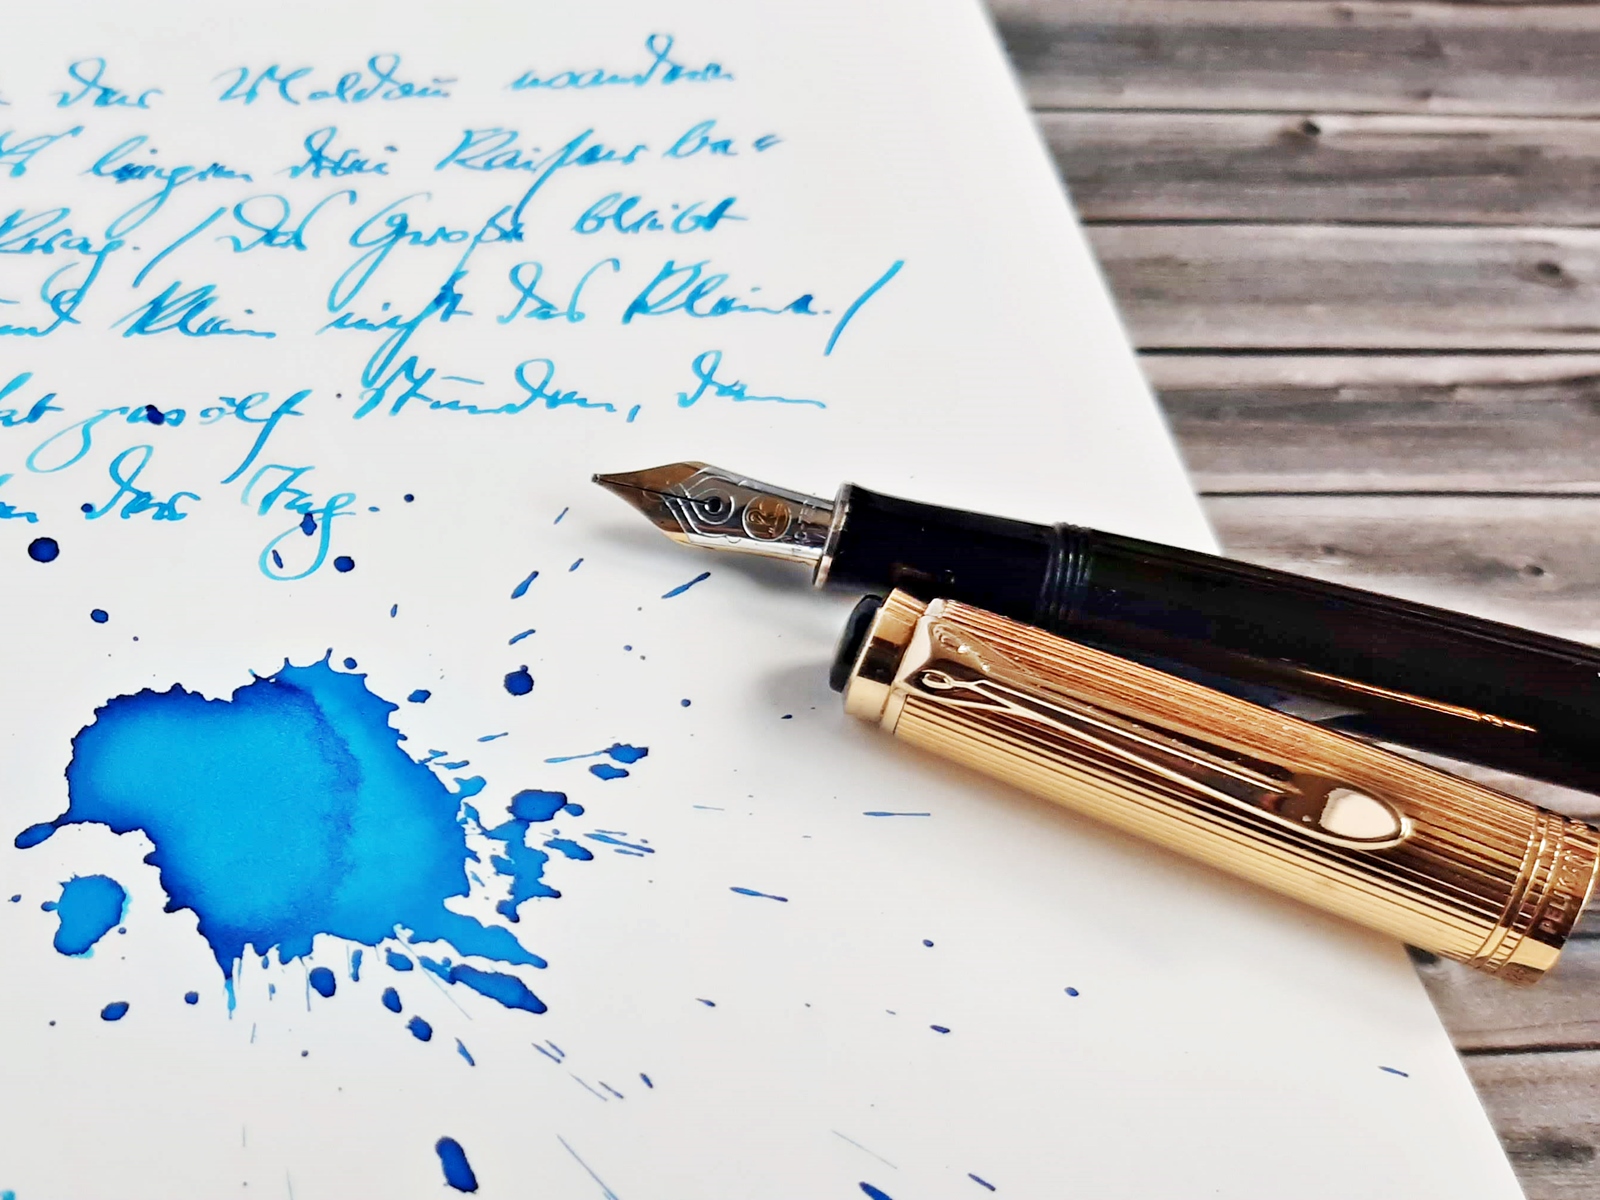 der Moldau wandern
liegen drei Kaiser be=
Prag. / Das Große bleibt
und Klein nicht das Kleine. /
hat zwölf Stunden, dann
der Tag.
PELIKAN